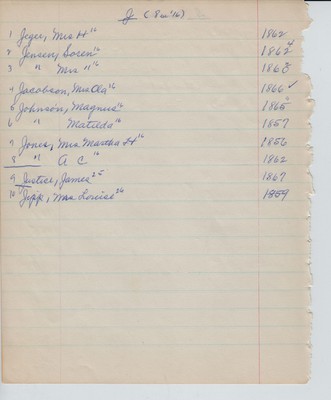 J (Dec '16)
1 Jeger, Mrs H 16 1862
2 Jensen, Soren 16 1862 ✓
3 " Mrs " 16 1863
4 Jacobson, Mrs Ola 16 1866 ✓
5 Johnson, Magnus 16 1865
6 " Matilda 16 1857
7 Jones, Mrs. Martha H 16 1856
8 " A C 16 1862
9 Justice, James 25 1867
10 Jipp, Mrs Louise 26 1859